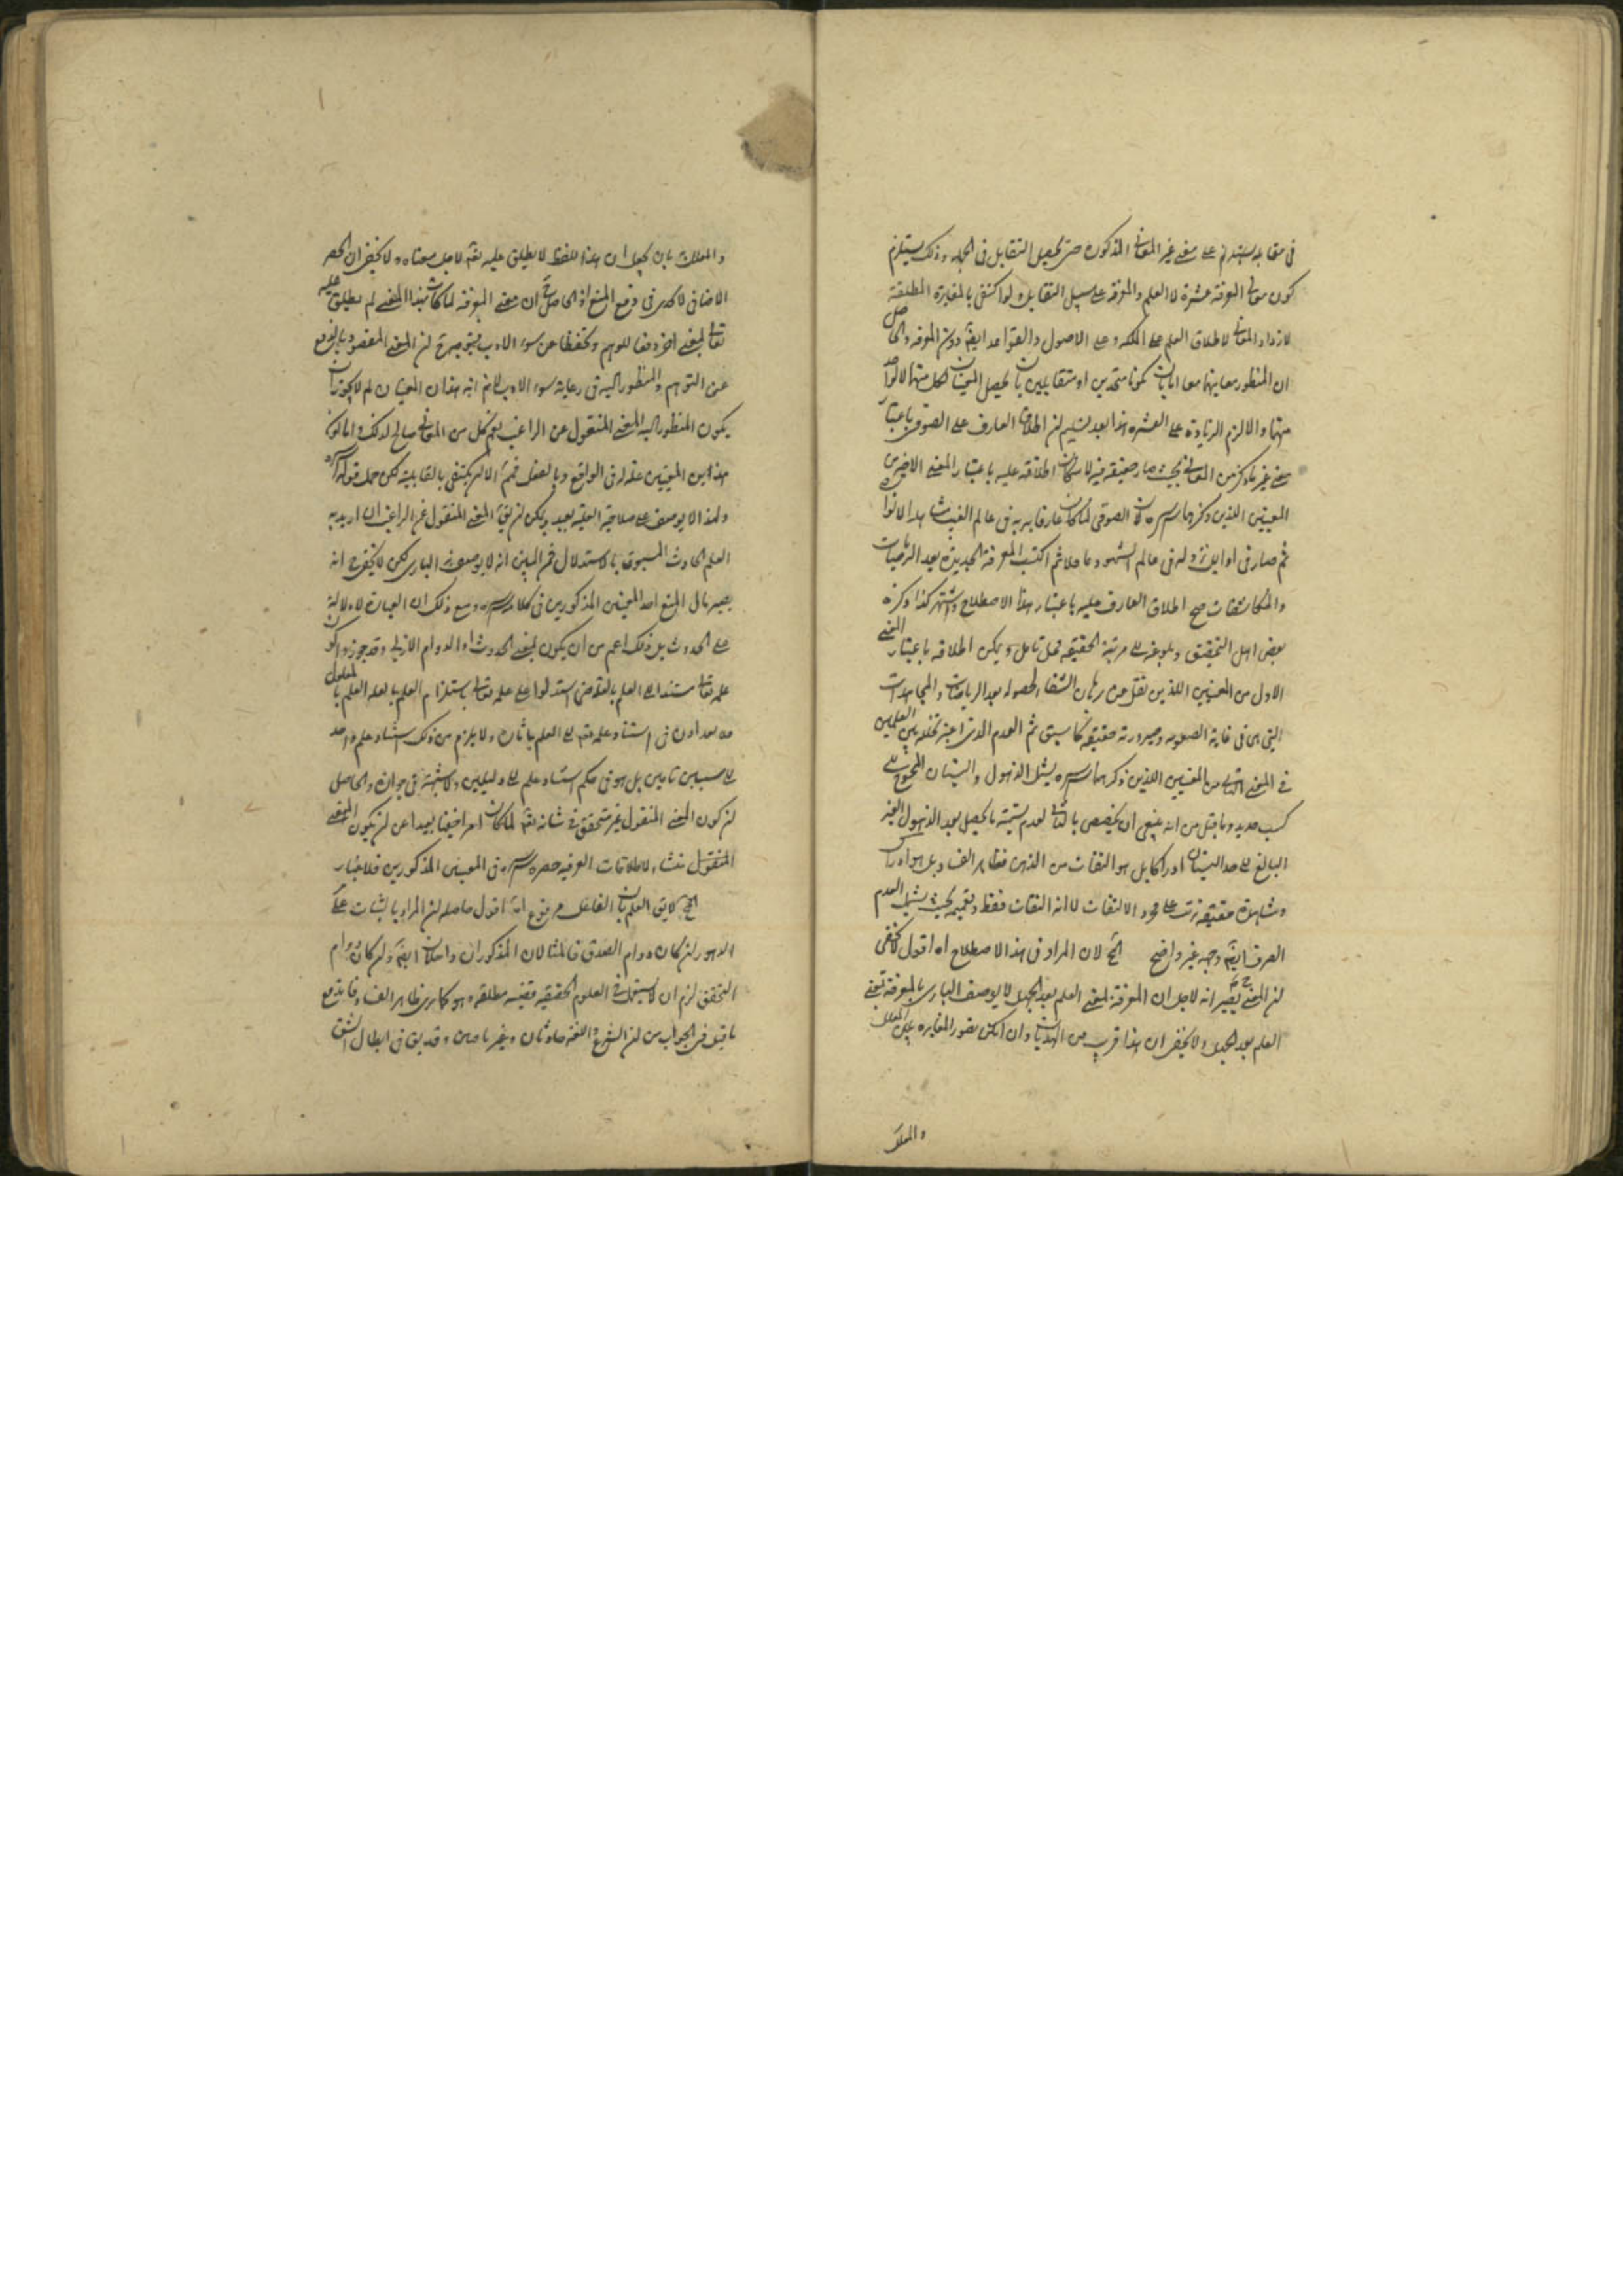 في مقابلة يستدل على معنى غير المعاني المذكورة حتى يحصل التقابل في الجملة وذلك يستلزم
كون معاني المعرفة عشرة لا العلم والمعرفة على سبيل التقابل ولو اكتفى بالمغايرة المطلقة
لازداد المعاني لاطلاق العلم على الملكة وعلى الاصول والقواعد ايضا دون المعرفة والحاصل
ان المنظور معاينهما معا اما بان يكونا متحدين او متقابلين بان يحصل المعنيان لكل منهما لا لواحد
منهما والا لزم الزيادة على العشرة هذا بعد تسليم ان اطلاق العارف على الصوفي باعتبار
معنى غير ما ذكر من المعاني بحيث صار حقيقة فيه لامكان اطلاقه عليه باعتبار المعنى الاخير من
المعنيين اللذين ذكرهما سره كان الصوفي لما كان عارفا بربه في عالم الغيب مشاهدا لانوا
ثم صار في اوايل نزوله في عالم الشهود غافلا ثم اكتسب المعرفة الجديدة بعد الرياضات
والمكاشفات صح اطلاق العارف عليه باعتبار هذا الاصطلاح واشتهر كذا ذكره
بعض اهل التحقيق وبلوغه الى مرتبة الحقيقة محل تامل ويمكن اطلاقه باعتبار المعنى
الاول من المعنيين اللذين نقل عن الشفا لحصوله بعد الرياضات والمجاهدات
التي هي في غاية الصعوبة وصيرورته حقيقة كما سبق ثم العدم الذي اعتبر تخلله بين العلمين
في المعنى الثاني من المعنيين اللذين ذكرهما سره يشمل الذهول والنسيان المحوج الى
كسب جديد وما قيل من انه ينبغي ان يخصص بالثاني لعدم تسمية ما يحصل بعد الذهول الغير
البالغ الى حد النسيان ادراكا بل هو التفات من الذهن فظاهر الفساد بل هو ادراك
ومشاهدة حقيقة ترتب على مجرد الالتفات لا انه التفات فقط وتعميمه بحيث يشمل العدم
الصرف ايضا وجه غير واضح الخ لان المراد في هذا الاصطلاح اه اقول لا يخفى
ان المعنى ح يصير انه لاجل ان المعرفة بمعنى العلم بعد الجهل لا يوصف الباري بالمعرفة بمعنى
العلم بعد الجهل ولا يخفى ان هذا قريب من الهذيان وان امكن تصور المغايرة بين المعلل
والمعلل
والمعلل به بان يجعل ان هذا اللفظ لا يطلق عليه تعالى لاجل معناه ولا يخفى ان الحصر
الاضافي لا يجدي في دفع المنع اذ الحاصل ان معنى المعرفة لما كانت بهذا المعنى لم يطلق عليه
تعالى بمعنى اخر دفعا للوهم وتحفظا عن سوء الادب فيتوجه ح ان المعنى المقصود بالدفع
عن التوهم والمنظور اليه في رعاية سوء الادب لا نم انه هذان المعنيان لم لا يجوز ان
يكون المنظور اليه المعنى المنقول عن الراغب نعم كل من المعاني صالح لذلك واما كون
هذين المعنيين علة له في الواقع وبالفعل فمم الا ان يكتفى بالقابلية لكن حمل قوله اه
ولهذا لا يوصف على صلاحية العلية بعيد ويمكن ان يق المعنى المنقول عن الراغب ان اريد به
العلم الحادث المسبوق بالاستدلال فمن البين انه لا يوصف به الباري لكن لا يخفى ح انه
يصير مال المنع احد المعنيين المذكورين في كلامه سره ومع ذلك ان العبارة لا دلالة
على الحدوث بل ذلك اعم من ان يكون بمعنى الحدوث او الدوام الازلي وقد جوزوا كون
علمه تعالى مستندا الى العلم بالعلة حتى استدلوا على علمه تعالى باستلزام العلم بالعلة العلم بالمعلول
في استناد علمه تعالى الى العلم باثاره ولا يلزم من ذلك استناد علم واحد
الى سببين تامين بل هو في حكم استناد علم الى دليلين ولا شبهة في جوازه والحاصل
ان كون المعنى المنقول غير متحقق في شانه تعالى لما كان امرا خفيا بعيدا عن ان يكون المعنى
المنقول منشاء لاطلاقات العرفية حصره سره في المعنيين المذكورين فلا غبار
الخ لا يق العلم بان الفاعل مرفوع اه اقول حاصله ان المراد بالثبات على
الدهور ان كان دوام الصدق فالمثالان المذكوران داخلان ايضا وان كان دوام
التحقق لزم ان لا يستعمل في العلوم الحقيقية قضية مطلقة وهو كما ترى ظاهر الفساد فاندفع
ما قيل في الجواب من ان الشرع واللغة حادثان وغير تامين وقد يق في ابطال الشق